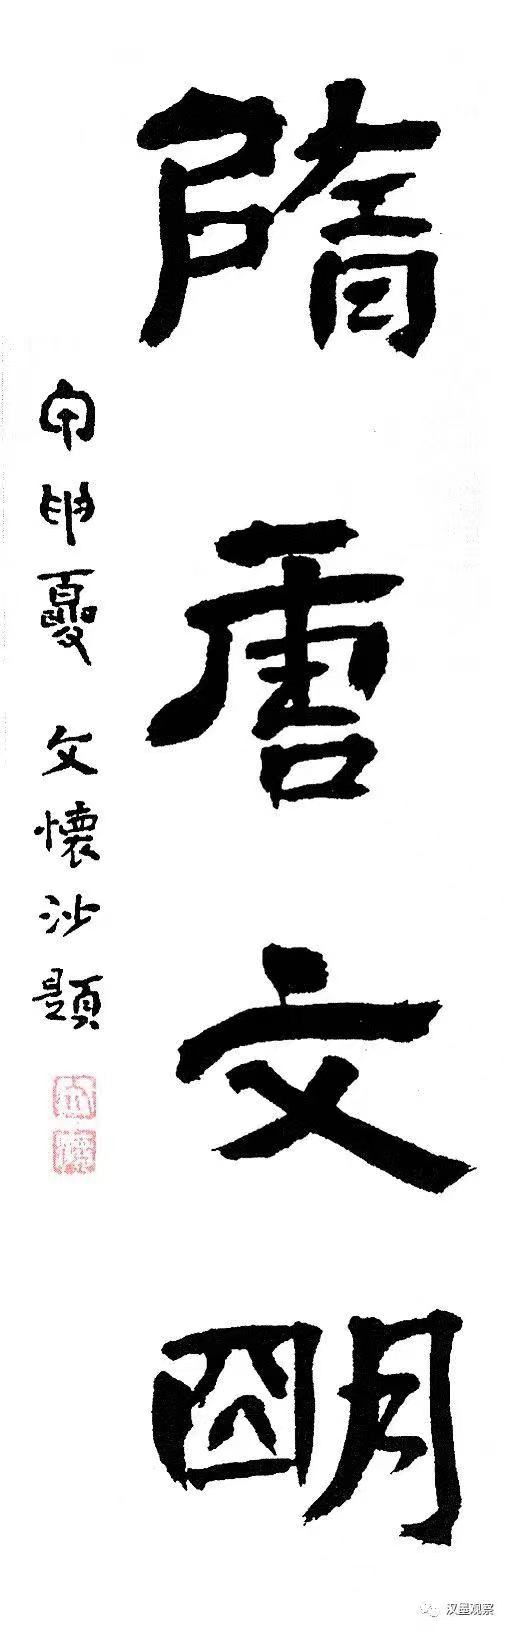 隋唐文明
甲申夏 文懷沙題
汉墨观察